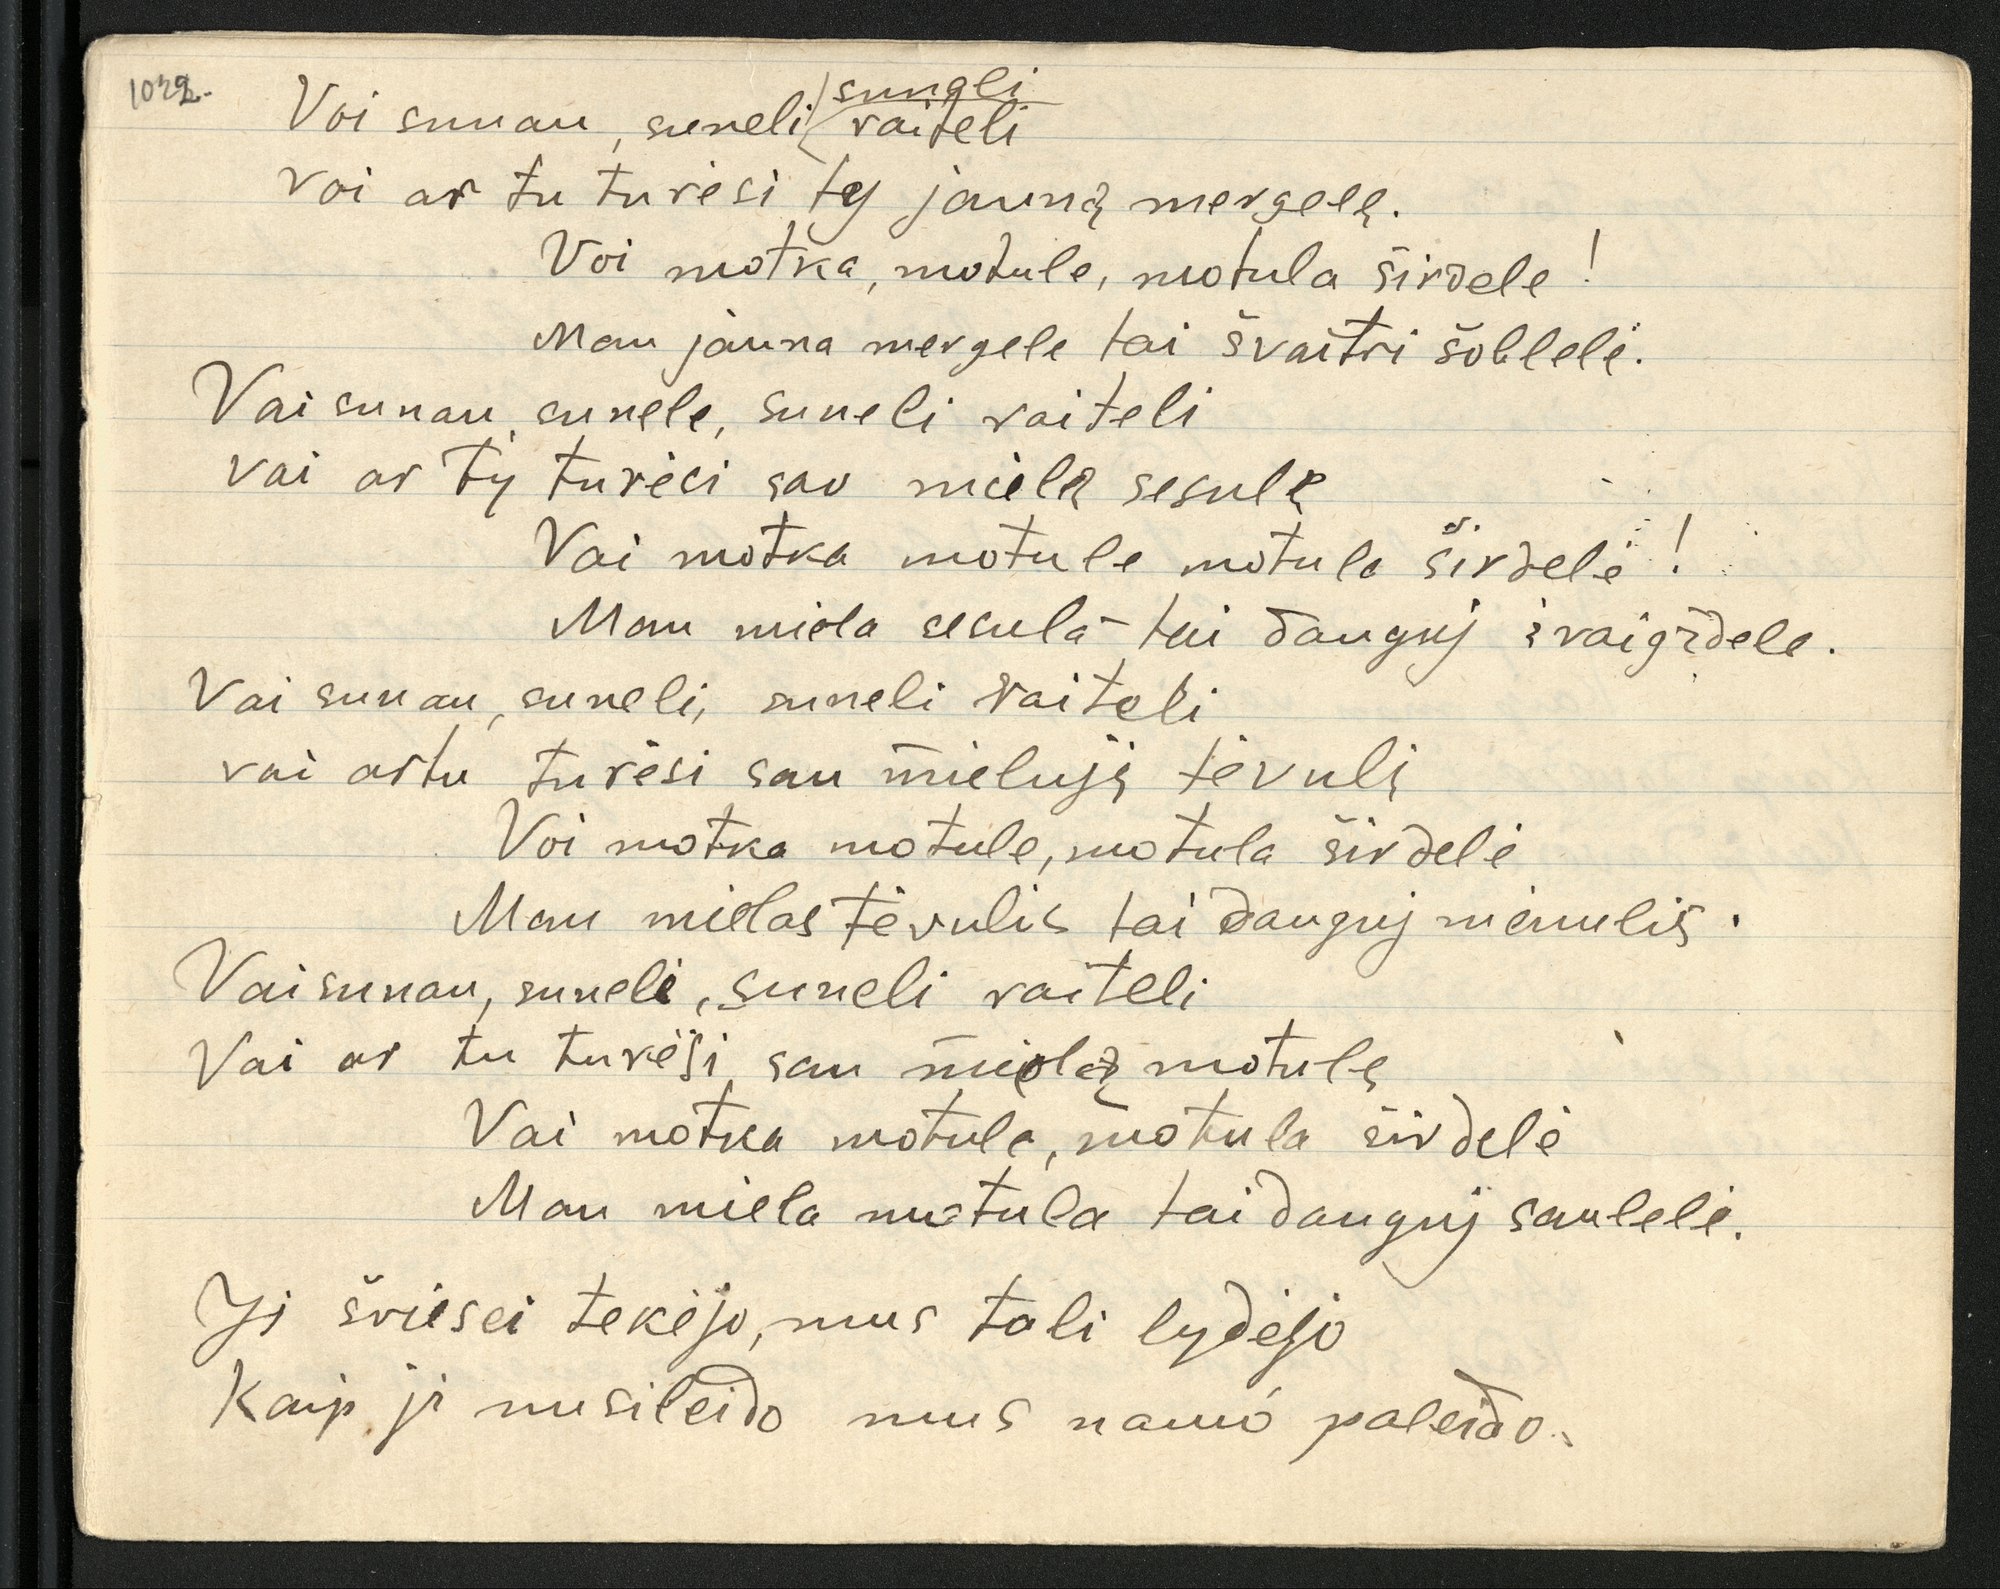 1022.
Voi sunau, suneli suneli raiteli
voi ar tu turėsi ty jauną mergelę.
Voi motka, motule, motula širdele!
Man jauna mergele tai švaitri šoblelė.
Vai sunau, sunele, suneli raiteli
vai ar ty turėsi sav mielą sesulę
Vai motka motule motula širdelė!
Man miela sesula - tai danguj žvaigždele.
Vai sunau, suneli, suneli raiteli
vai artu turėsi sau mielųjį tėvulį
Voi motka motule, motula širdelė
Man mielas tėvulis tai danguj mėnulis.
Vai sunau, suneli, suneli raiteli
Vai ar tu turėsi sau mielą motulę
Vai motka motule, motula širdelė
Man miela motula tai danguj saulelė.
Ji šviesei tekėjo, mus toli lydėjo
Kaip ji nusileido mus namo paleido.